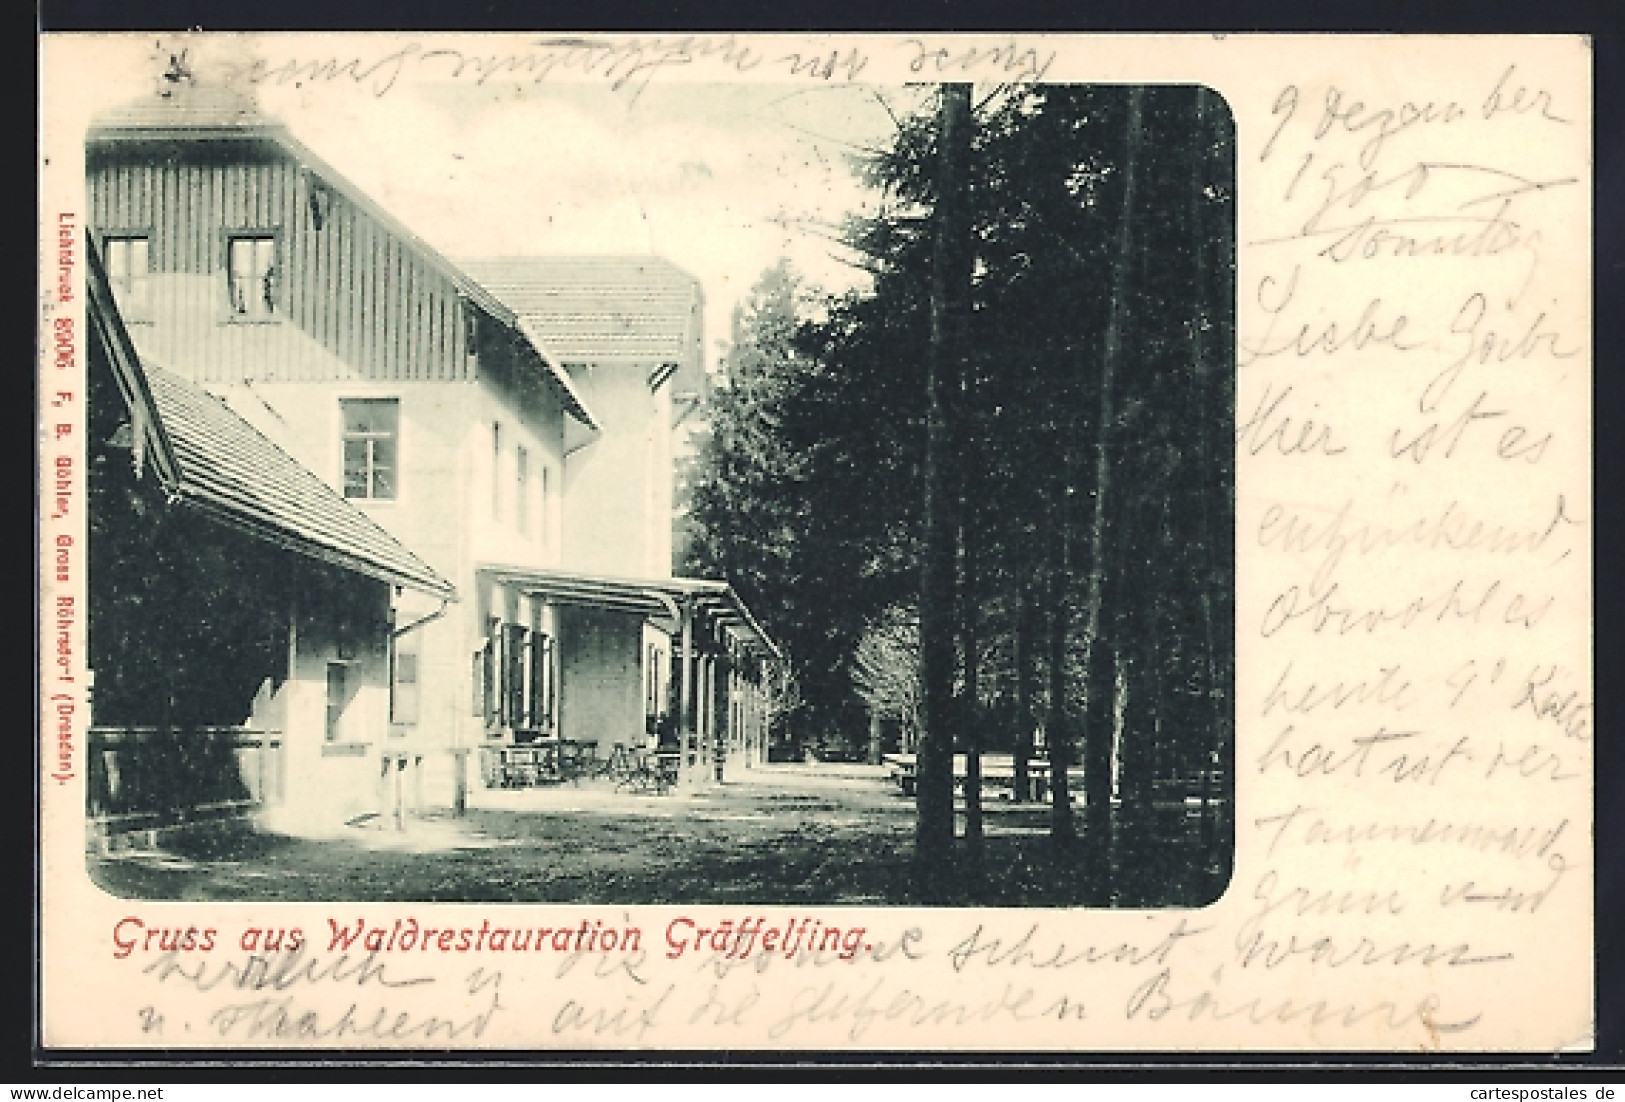 9 Dezember
1900
Sonntag
Liebe
Hier ist es
entzückend,
obwohl es
heute 4° Kälte
hat ist der
Tannenwald
grün und
herrlich u die Sonne scheint warm
u. strahlend auf die glitzernden Bäume
Gruss aus Waldrestauration Gräffelfing.
Lichtdruck 8906 F. B. Böhler, Gross Röhrsdorf (Dresden).
cartespostales de